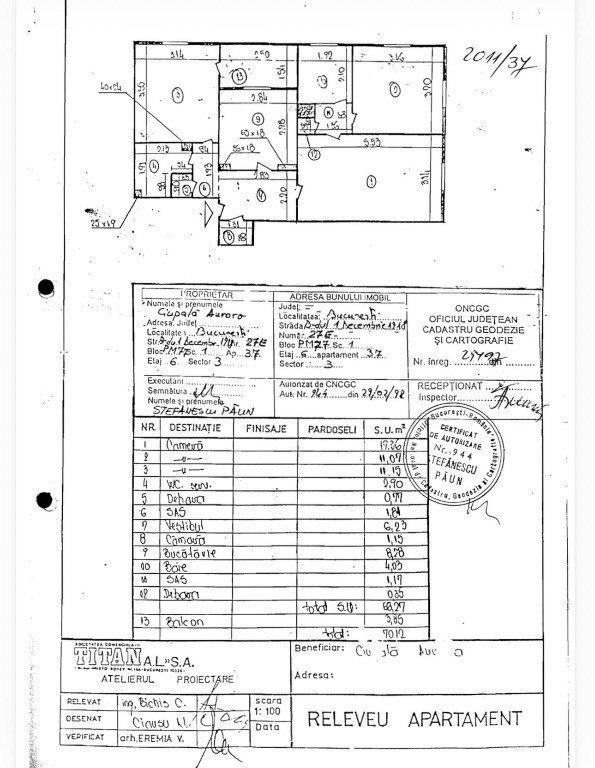 2011/37
3.14
2.50
1.92
3.46
13
1.54
2.10
3.55
40x24
3
2.84
2
3.20
9
2.98
11
1.36
65x18
2.13
.94
35x18
12
5.93
4
1.93
.94
1.93
5
6
2.83
7
2.20
1
3.14
25x19
1.31
8
.88
PROPRIETAR
Numele și prenumele
Ciupală Aurora
Adresa: Județ
Localitatea București
Strada B-dul 1 Decembrie 1918 Nr. 27E
Bloc P.M27 Sc. 1 Ap. 37
Etaj 6 Sector 3
ADRESA BUNULUI IMOBIL
Județ: =
Localitatea: București
Strada B-dul 1 Decembrie 1918
Număr 27E
Bloc P.M27 Sc. 1
Etaj 6 apartament 37
Sector 3
ONCGC
OFICIUL JUDEȚEAN
CADASTRU GEODEZIE
ȘI CARTOGRAFIE
Nr. înreg.
Executant
Semnătura
Numele și prenumele
STEFĂNESCU PĂUN
Autorizat de CNCGC
Aut. Nr. 944 din 29/07/98
RECEPȚIONAT
Inspector
CERTIFICAT
DE AUTORIZARE
Nr. 944
ȘTEFĂNESCU
PĂUN
NR. DESTINAȚIE FINISAJE PARDOSELI S.U. m²
1 Cameră 19.36
2 —"— 11,07
3 —"— 11,15
4 W.C. serv. 2.90
5 Debara 0,77
6 SAS 1,81
7 Vestibul 6,23
8 Cămară 1,15
9 Bucătărie 8,28
10 Baie 4,03
11 SAS 1,17
12 Debara 0.35
total S.U: 68,27
13 Balcon 3,85
total: 70.12
SOCIETATEA COMERCIALĂ
TITAN A.L» S.A.
ATELIERUL PROIECTARE
Beneficiar:
Adresa:
RELEVAT ing. Bichis C.
DESENAT
VERIFICAT arh. EREMIA V.
scara
1: 100
Data
RELEVEU APARTAMENT